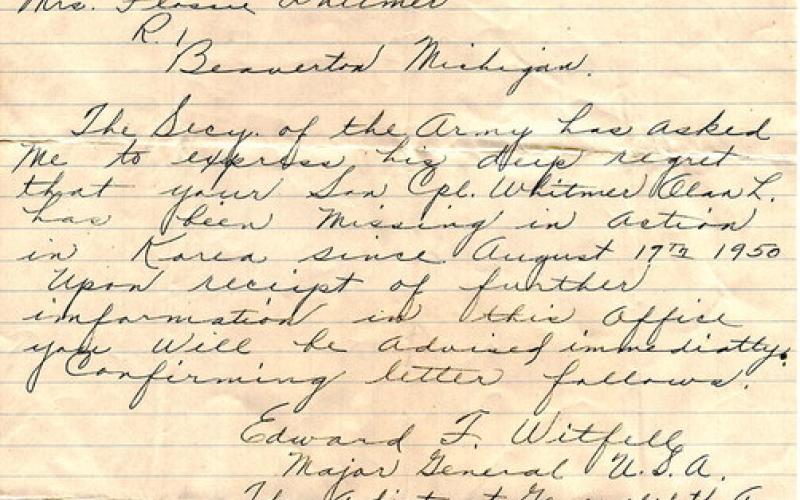 Mrs. Flossie Whitmer
R. 1
Beaverton Michigan.
The Secy. of the Army has asked
Me to express his deep regret
that your Son Cpl. Whitmer Olan L.
has been Missing in action
in Korea since August 17th 1950
Upon receipt of further
imformation in this Office
you Will be Advised immediatly.
Confirming letter follows.
Edward F. Witfell
Major General U.S.A.
The Adjutant General